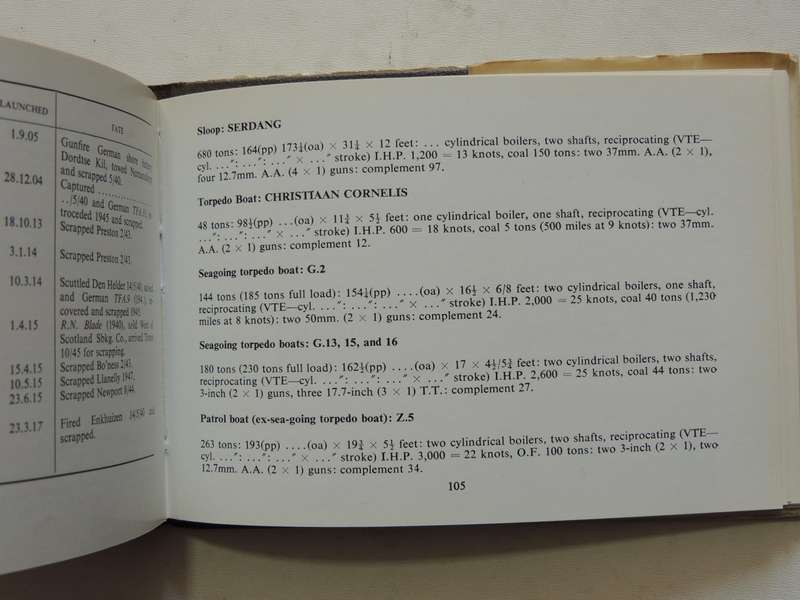 LAUNCHED
FATE
1.9.05
Gunfire German shore
Dordtse Kil, towed
and scrapped 5/40.
28.12.04
Captured ..................
../5/40 and German TFA.
troceded 1945 and scrapped.
18.10.13
Scrapped Preston 2/43.
3.1.14
Scrapped Preston 2/43.
10.3.14
Scuttled Den Helder 14/5/40,
and German TFA.9 (194.),
covered and scrapped 1945.
1.4.15
R.N. Blade (1940), sold West of
Scotland Sbkg. Co., arrived
10/45 for scrapping.
15.4.15
Scrapped Bo'ness 2/43.
10.5.15
Scrapped Llanelly 1947.
23.6.15
Scrapped Newport 8/44.
23.3.17
Fired Enkhuizen 14/5/40 and
scrapped.
Sloop: SERDANG
680 tons: 164(pp) 173¼(oa) × 31¼ × 12 feet: ... cylindrical boilers, two shafts, reciprocating (VTE—
cyl. ...": ...": ..." × ..." stroke) I.H.P. 1,200 = 13 knots, coal 150 tons: two 37mm. A.A. (2 × 1),
four 12.7mm. A.A. (4 × 1) guns: complement 97.
Torpedo Boat: CHRISTIAAN CORNELIS
48 tons: 98½(pp) ...(oa) × 11¾ × 5½ feet: one cylindrical boiler, one shaft, reciprocating (VTE—cyl.
...": ...": ..." × ..." stroke) I.H.P. 600 = 18 knots, coal 5 tons (500 miles at 9 knots): two 37mm.
A.A. (2 × 1) guns: complement 12.
Seagoing torpedo boat: G.2
144 tons (185 tons full load): 154¼(pp) ....(oa) × 16½ × 6/8 feet: two cylindrical boilers, one shaft,
reciprocating (VTE—cyl. ...": ...": ..." × ..." stroke) I.H.P. 2,000 = 25 knots, coal 40 tons (1,230
miles at 8 knots): two 50mm. (2 × 1) guns: complement 24.
Seagoing torpedo boats: G.13, 15, and 16
180 tons (230 tons full load): 162½(pp) ....(oa) × 17 × 4½/5¾ feet: two cylindrical boilers, two shafts,
reciprocating (VTE—cyl. ...": ...": ..." × ..." stroke) I.H.P. 2,600 = 25 knots, coal 44 tons: two
3-inch (2 × 1), three 17.7-inch (3 × 1) T.T.: complement 27.
Patrol boat (ex-sea-going torpedo boat): Z.5
263 tons: 193(pp) ....(oa) × 19¾ × 5½ feet: two cylindrical boilers, two shafts, reciprocating (VTE—
cyl. ...": ...": ..." × ..." stroke) I.H.P. 3,000 = 22 knots, O.F. 100 tons: two 3-inch (2 × 1), two
12.7mm. A.A. (2 × 1) guns: complement 34.
105